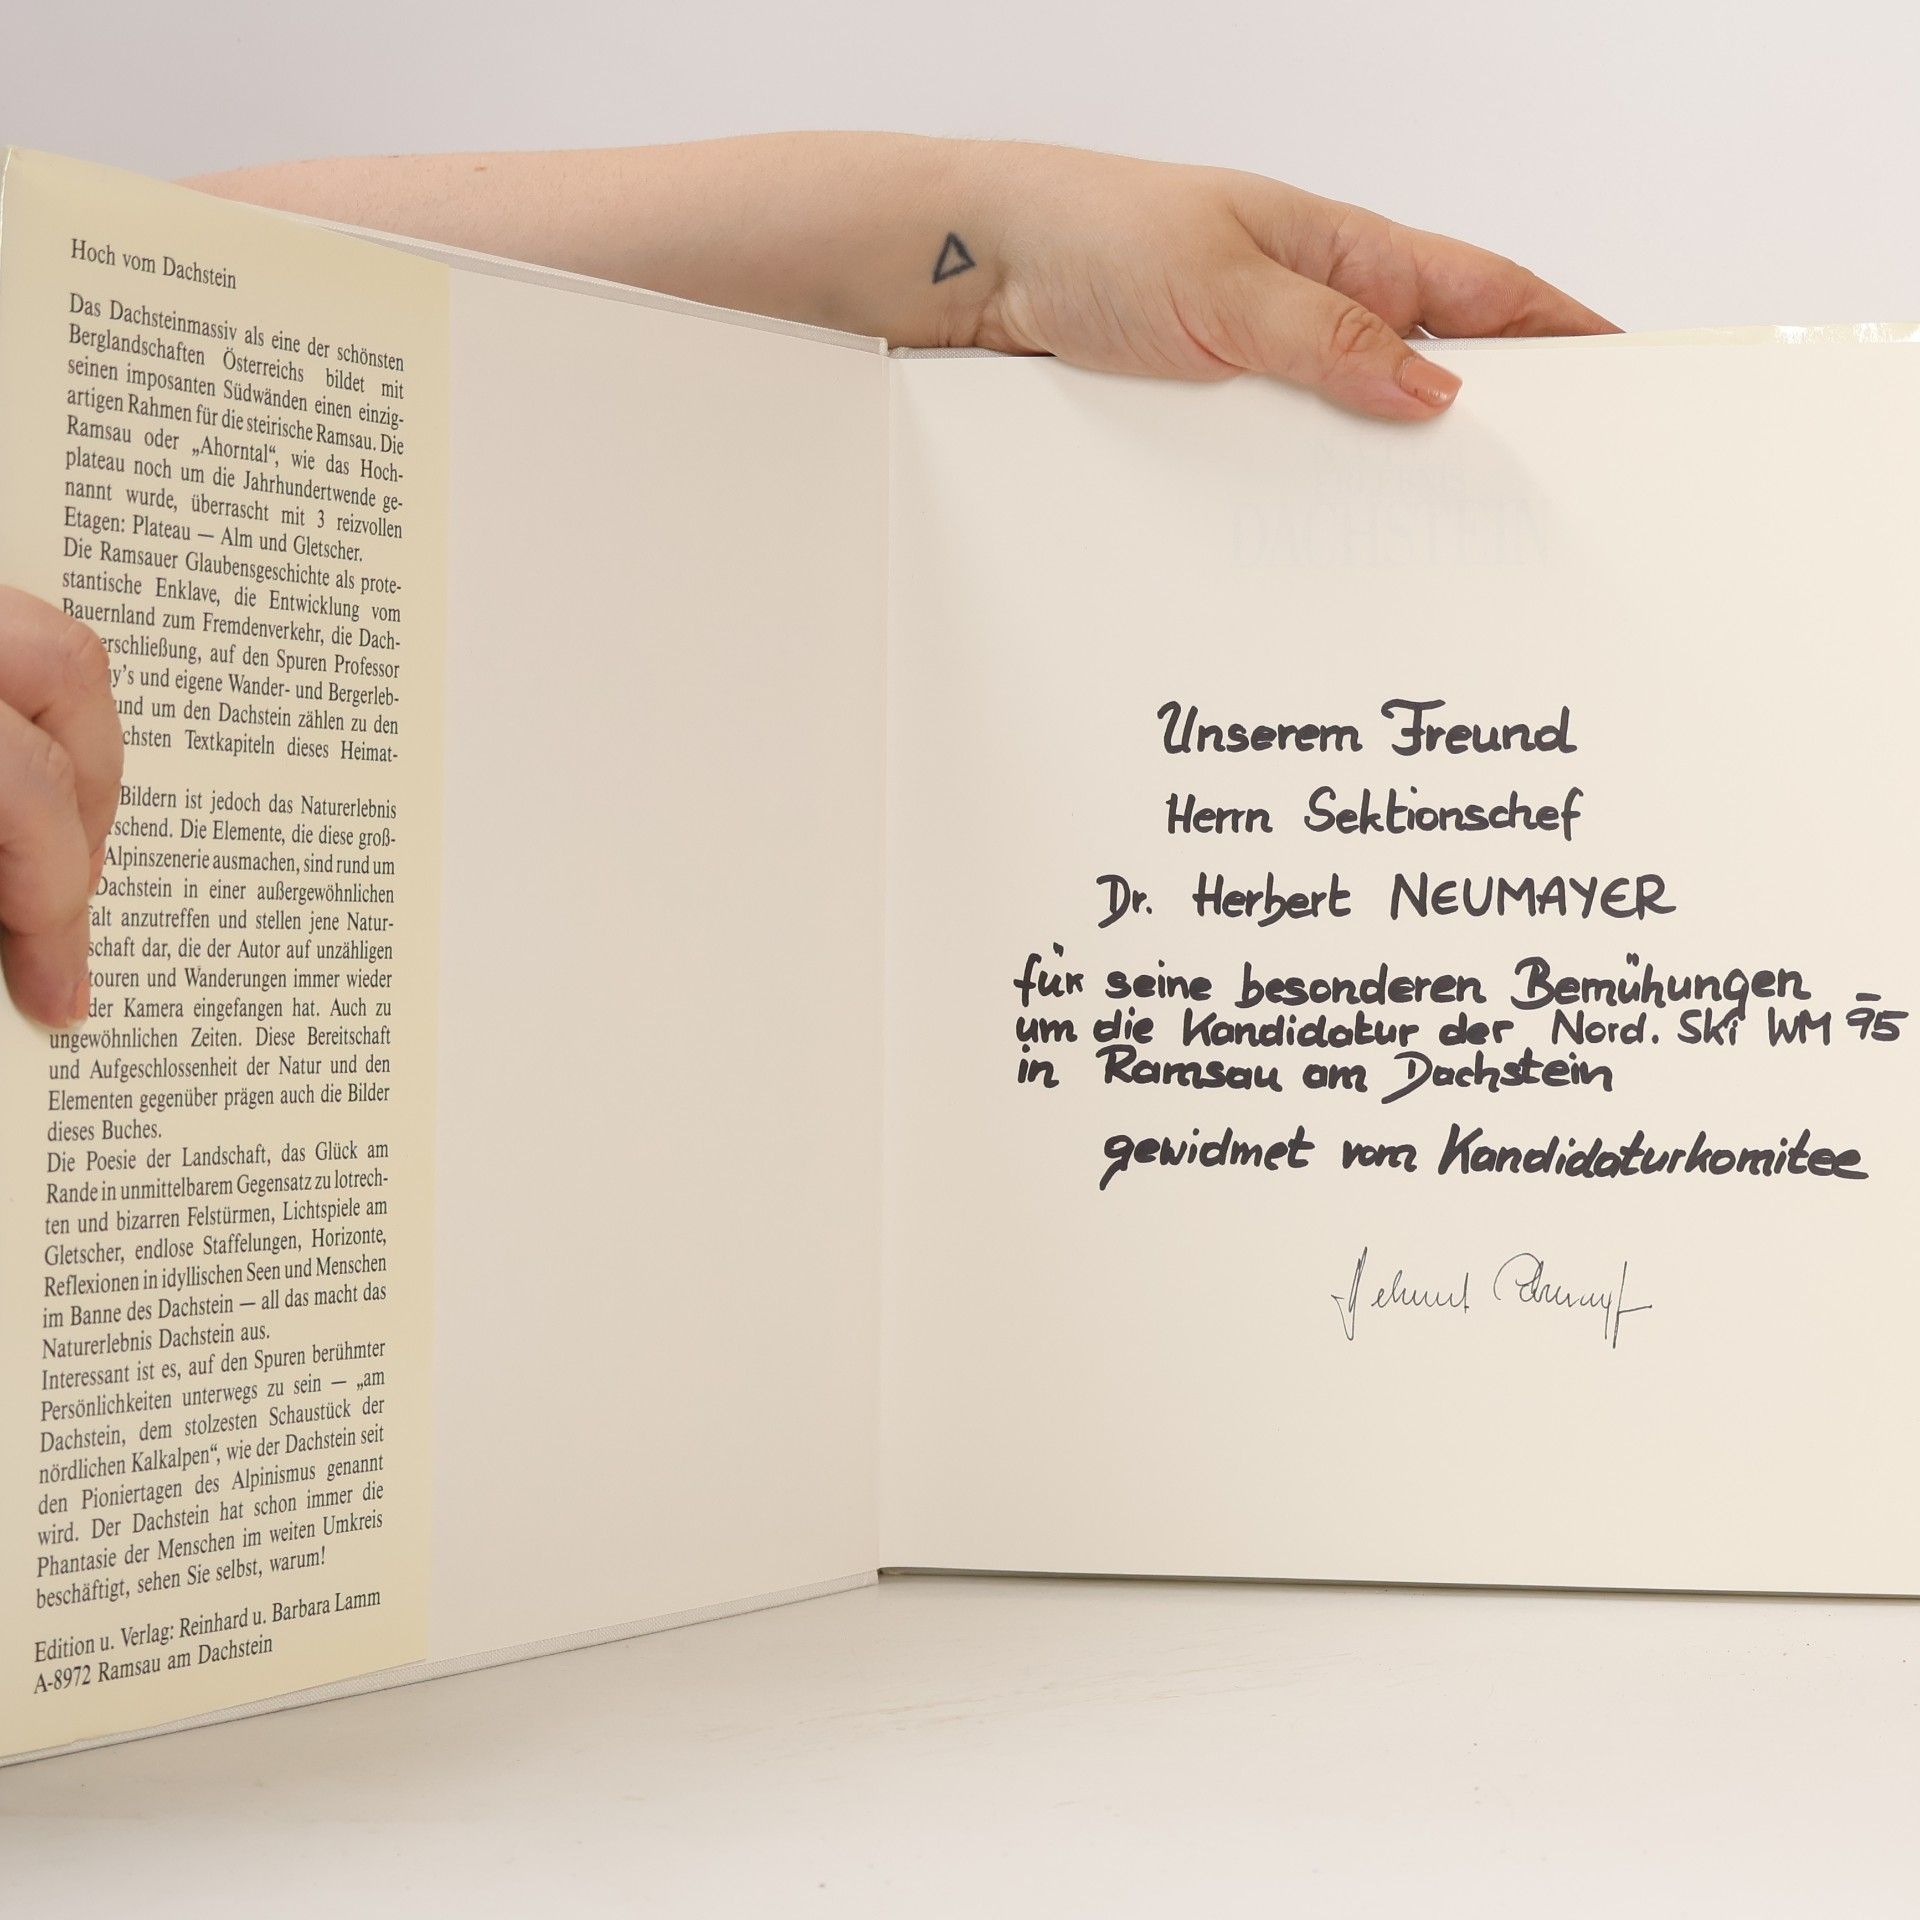 Hoch vom Dachstein
Das Dachsteinmassiv als eine der schönsten
Berglandschaften Österreichs bildet mit
seinen imposanten Südwänden einen einzig-
artigen Rahmen für die steirische Ramsau. Die
Ramsau oder „Ahorntal“, wie das Hoch-
plateau noch um die Jahrhundertwende ge-
nannt wurde, überrascht mit 3 reizvollen
Etagen: Plateau — Alm und Gletscher.
Die Ramsauer Glaubensgeschichte als prote-
stantische Enklave, die Entwicklung vom
Bauernland zum Fremdenverkehr, die Dach-
erschließung, auf den Spuren Professor
y’s und eigene Wander- und Bergerleb-
und um den Dachstein zählen zu den
chsten Textkapiteln dieses Heimat-
Bildern ist jedoch das Naturerlebnis
rschend. Die Elemente, die diese groß-
Alpinszenerie ausmachen, sind rund um
Dachstein in einer außergewöhnlichen
falt anzutreffen und stellen jene Natur-
schaft dar, die der Autor auf unzähligen
touren und Wanderungen immer wieder
der Kamera eingefangen hat. Auch zu
ungewöhnlichen Zeiten. Diese Bereitschaft
und Aufgeschlossenheit der Natur und den
Elementen gegenüber prägen auch die Bilder
dieses Buches.
Die Poesie der Landschaft, das Glück am
Rande in unmittelbarem Gegensatz zu lotrech-
ten und bizarren Felstürmen, Lichtspiele am
Gletscher, endlose Staffelungen, Horizonte,
Reflexionen in idyllischen Seen und Menschen
im Banne des Dachstein — all das macht das
Naturerlebnis Dachstein aus.
Interessant ist es, auf den Spuren berühmter
Persönlichkeiten unterwegs zu sein — „am
Dachstein, dem stolzesten Schaustück der
nördlichen Kalkalpen“, wie der Dachstein seit
den Pioniertagen des Alpinismus genannt
wird. Der Dachstein hat schon immer die
Phantasie der Menschen im weiten Umkreis
beschäftigt, sehen Sie selbst, warum!
Edition u. Verlag: Reinhard u. Barbara Lamm
A-8972 Ramsau am Dachstein
DACHSTEIN
Unserem Freund
Herrn Sektionschef
Dr. Herbert NEUMAYER
für seine besonderen Bemühungen
um die Kandidatur der Nord. Ski WM 95
in Ramsau am Dachstein
gewidmet vom Kandidaturkomitee
Helmut